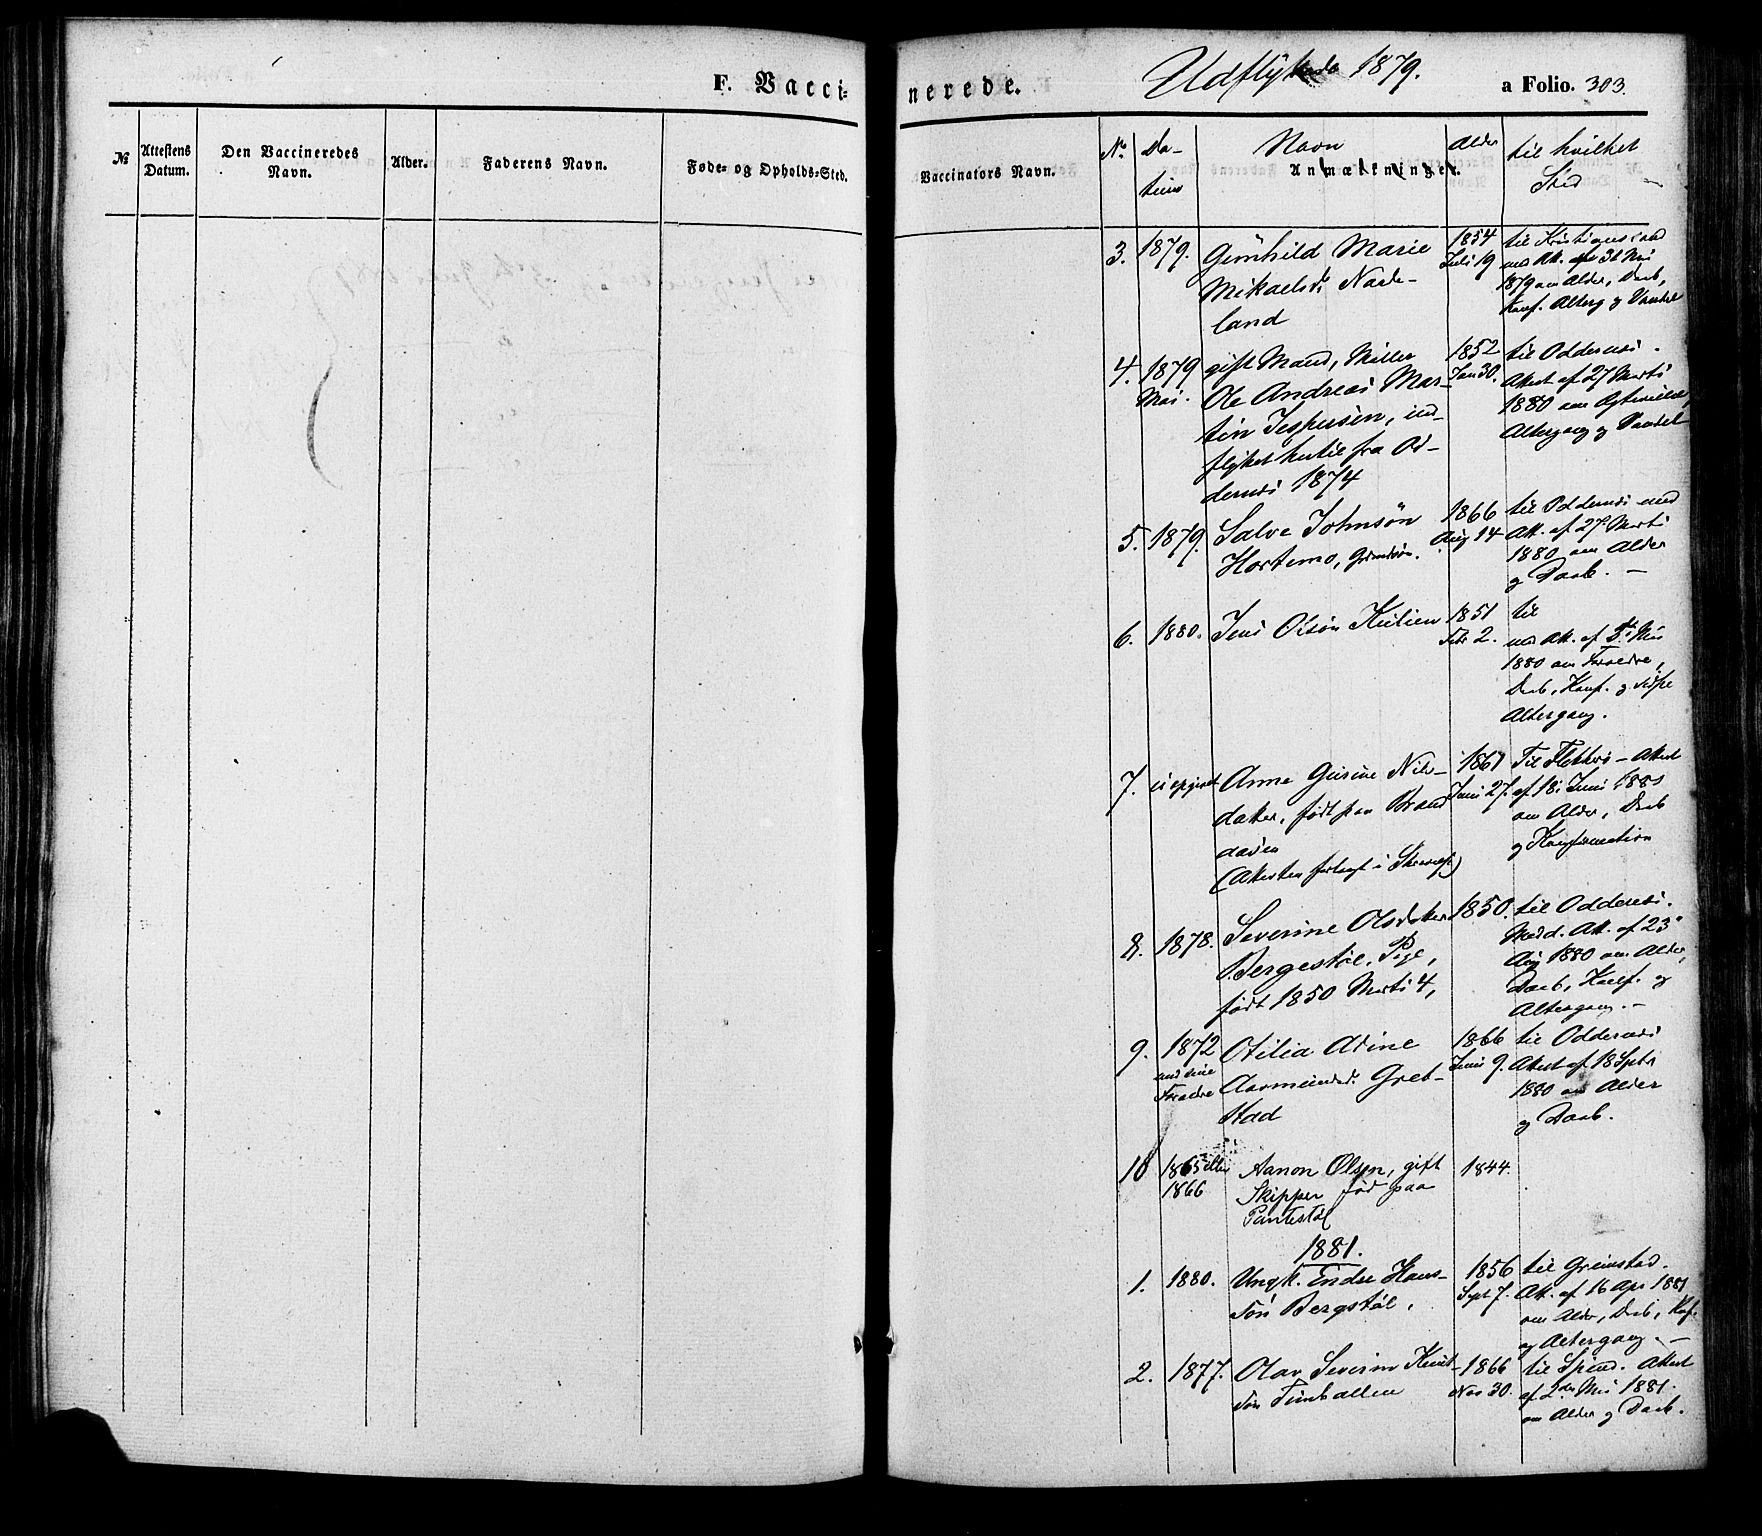 F. Vacci-
nerede.
Udflyttede 1879.
a Folio. 303.
№
Attestens Datum.
Den Vaccineredes Navn.
Alder.
Faderens Navn.
Føde- og Opholds-Sted.
Vaccinators Navn.
Anmærkninger.
No.
Da-
tum
Navn
Alder
til hvilket
Sted
3. 1879. Gunhild Marie
Mikaelsd. Node-
land
1854
Juli 19
til Kristianssand
med Att. af 31 Mai
1879 om Alder, Daab,
Konf. Alterg og Vandel
4. 1879
Mai.
gift Mand, Møller
Ole Andreas Mar-
tin Jespersen, ind-
flyttet hertil fra Od-
dernes 1874
1852
Jan 30.
til Oddernes.
Attest af 27 Marts
1880 om
Altergang og Vandel
5. 1879. Salve Johnsøn
Hortemo,
1866
Aug 14
til Oddernes med
Att. af 27 Marts
1880 om Alder
og Daab. —
6. 1880. Jens Olsøn Kulien
1851
Febr 2.
til
med Att. af 5te Mai
1880 om Forældre,
Daab, Konf. og sidste
Altergang.
7. ei opgivet
Anne Gurine Nils-
datter, født paa Brand
aasen
(Attesten forlagt i
1861
Juni 27.
Til Flekkerø — Attest
af 18 Juni 1881
om Alder, Daab
og Konfirmation
8. 1878. Severine Olsdatter
Bergestøl, Pige,
født 1850 Marts 4,
1850.
til Oddernes.
Medd. Att. af 23
Aug 1880 om Alder,
Daab, Konf. og
Altergang. —
9. 1872
med sine
Forældre
Otilia Adine
Aarmundsd. Greb-
stad
1866
Juni 9.
til Oddernes
Attest af 18 Septr
1880 om Alder
og Daab.
10 1865 eller
1866
Aanon Olsen, gift
Skipper fød paa
Pantestøl
1844.
1881.
1. 1880. Ungk. Endre Hans-
søn Bergstøl,
1856
Sept 7.
til Grimstad.
Att. af 16 Apr 1881
om Alder, Daab, Konf.
og Altergang. —
2. 1877. Olav Severin Knut-
søn
1866
Nov 30.
til Spind. Attest
af 2den Mai 1881.
om Alder og Daab.